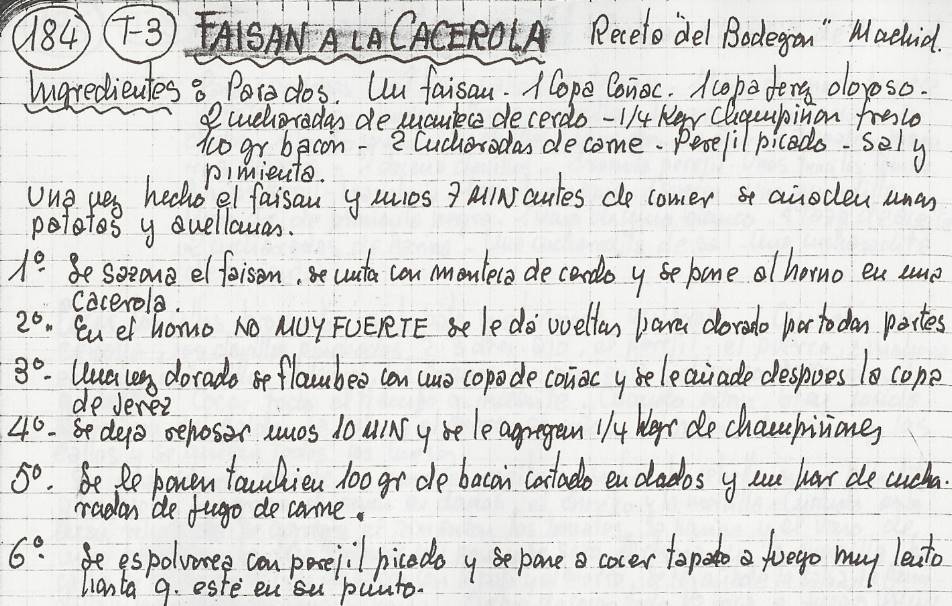 184 T-3 FAISAN A LA CACEROLA Receta "del Bodegon" Madrid.
Ingredientes: Para dos. Un faisan - 1 Copa Coñac. 1 copa Jerez oloroso.
2 cucharadas de manteca de cerdo - 1/4 Kgr Champiñon fresco
100 gr bacon - 2 Cucharadas de carne - Perejil picado - Sal y
pimienta.
Una vez hecho el faisan y unos 7 MIN antes de comer se añaden unas
patatas y avellanas.
1º. Se sazona el faisan, se unta con manteca de cerdo y se pone al horno en una
cacerola.
2º. En el horno NO MUY FUERTE se le dá vueltas para dorado por todas partes
3º- Una vez dorado se flambea con una copa de coñac y se le añade despues la copa
de Jerez
4º- Se deja reposar unos 10 MIN y se le agregan 1/4 Kgr de champiñones
5º. Se le ponen tambien 100 gr de bacon cortado en dados y un par de cucha-
radas de jugo de carne.
6º. Se espolvorea con perejil picado y se pone a cocer tapado a fuego muy lento
hasta q. esté en su punto.